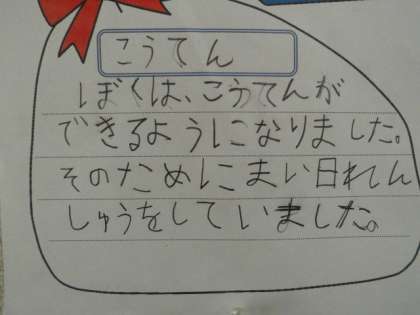 こうてん
ぼくは、こうてんが
できるようになりました。
そのためにまい日れん
しゅうをしていました。